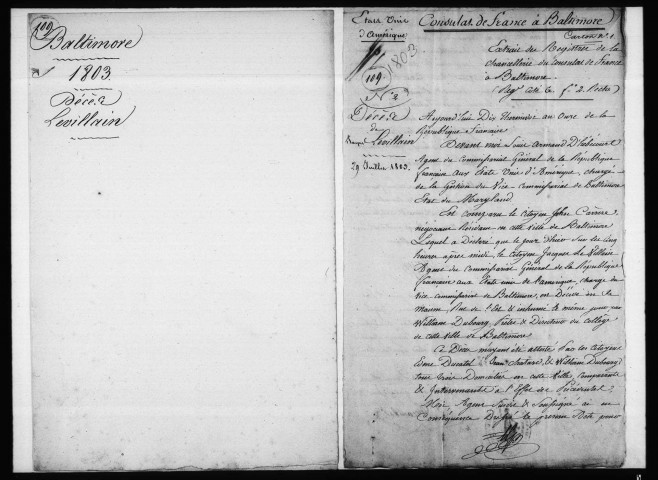 109
Baltimore
1803
Décès
Levillain
Etats Unis
d'Amérique
1803
109
N° 2
Décès
de
Levillain
29 Juillet 1803
Consulat de France à Baltimore
Carton n° 1
Extrait des Registres de la
chancellerie du consulat de France
à Baltimore
Aujourd'hui Dix Thermidor an Onze de la
République Française
Devant moi Louis Armand D'hébécourt
Agent du Commissariat Général de la République
française aux Etats Unis d'Amérique, chargé
de la Gestion du Vice commissariat de Baltimore
Etat du Maryland
Est comparu le citoyen John Carrere,
négociant Résidant en cette ville de Baltimore
Lequel a Déclaré que le jour d'hier sur les cinq
heures après midi, le citoyen Jacques Le Villain
Agent du commissariat Général de la République
française aux Etats unis de l'amérique, chargé du
vice commissariat de Baltimore, est Décédé en sa
maison
William Dubourg, Prêtre & Directeur du Collège
de cette ville de Baltimore
Ce Décès m'ayant été attesté par les citoyens
Edme Ducatel & William Dubourg,
tous trois Domiciliés en cette ville, comparants
& Intervenants à l'Effet des Présentes
Moi Agent Susdit & Soussigné ai en
Conséquence Dressé le présent Acte pour